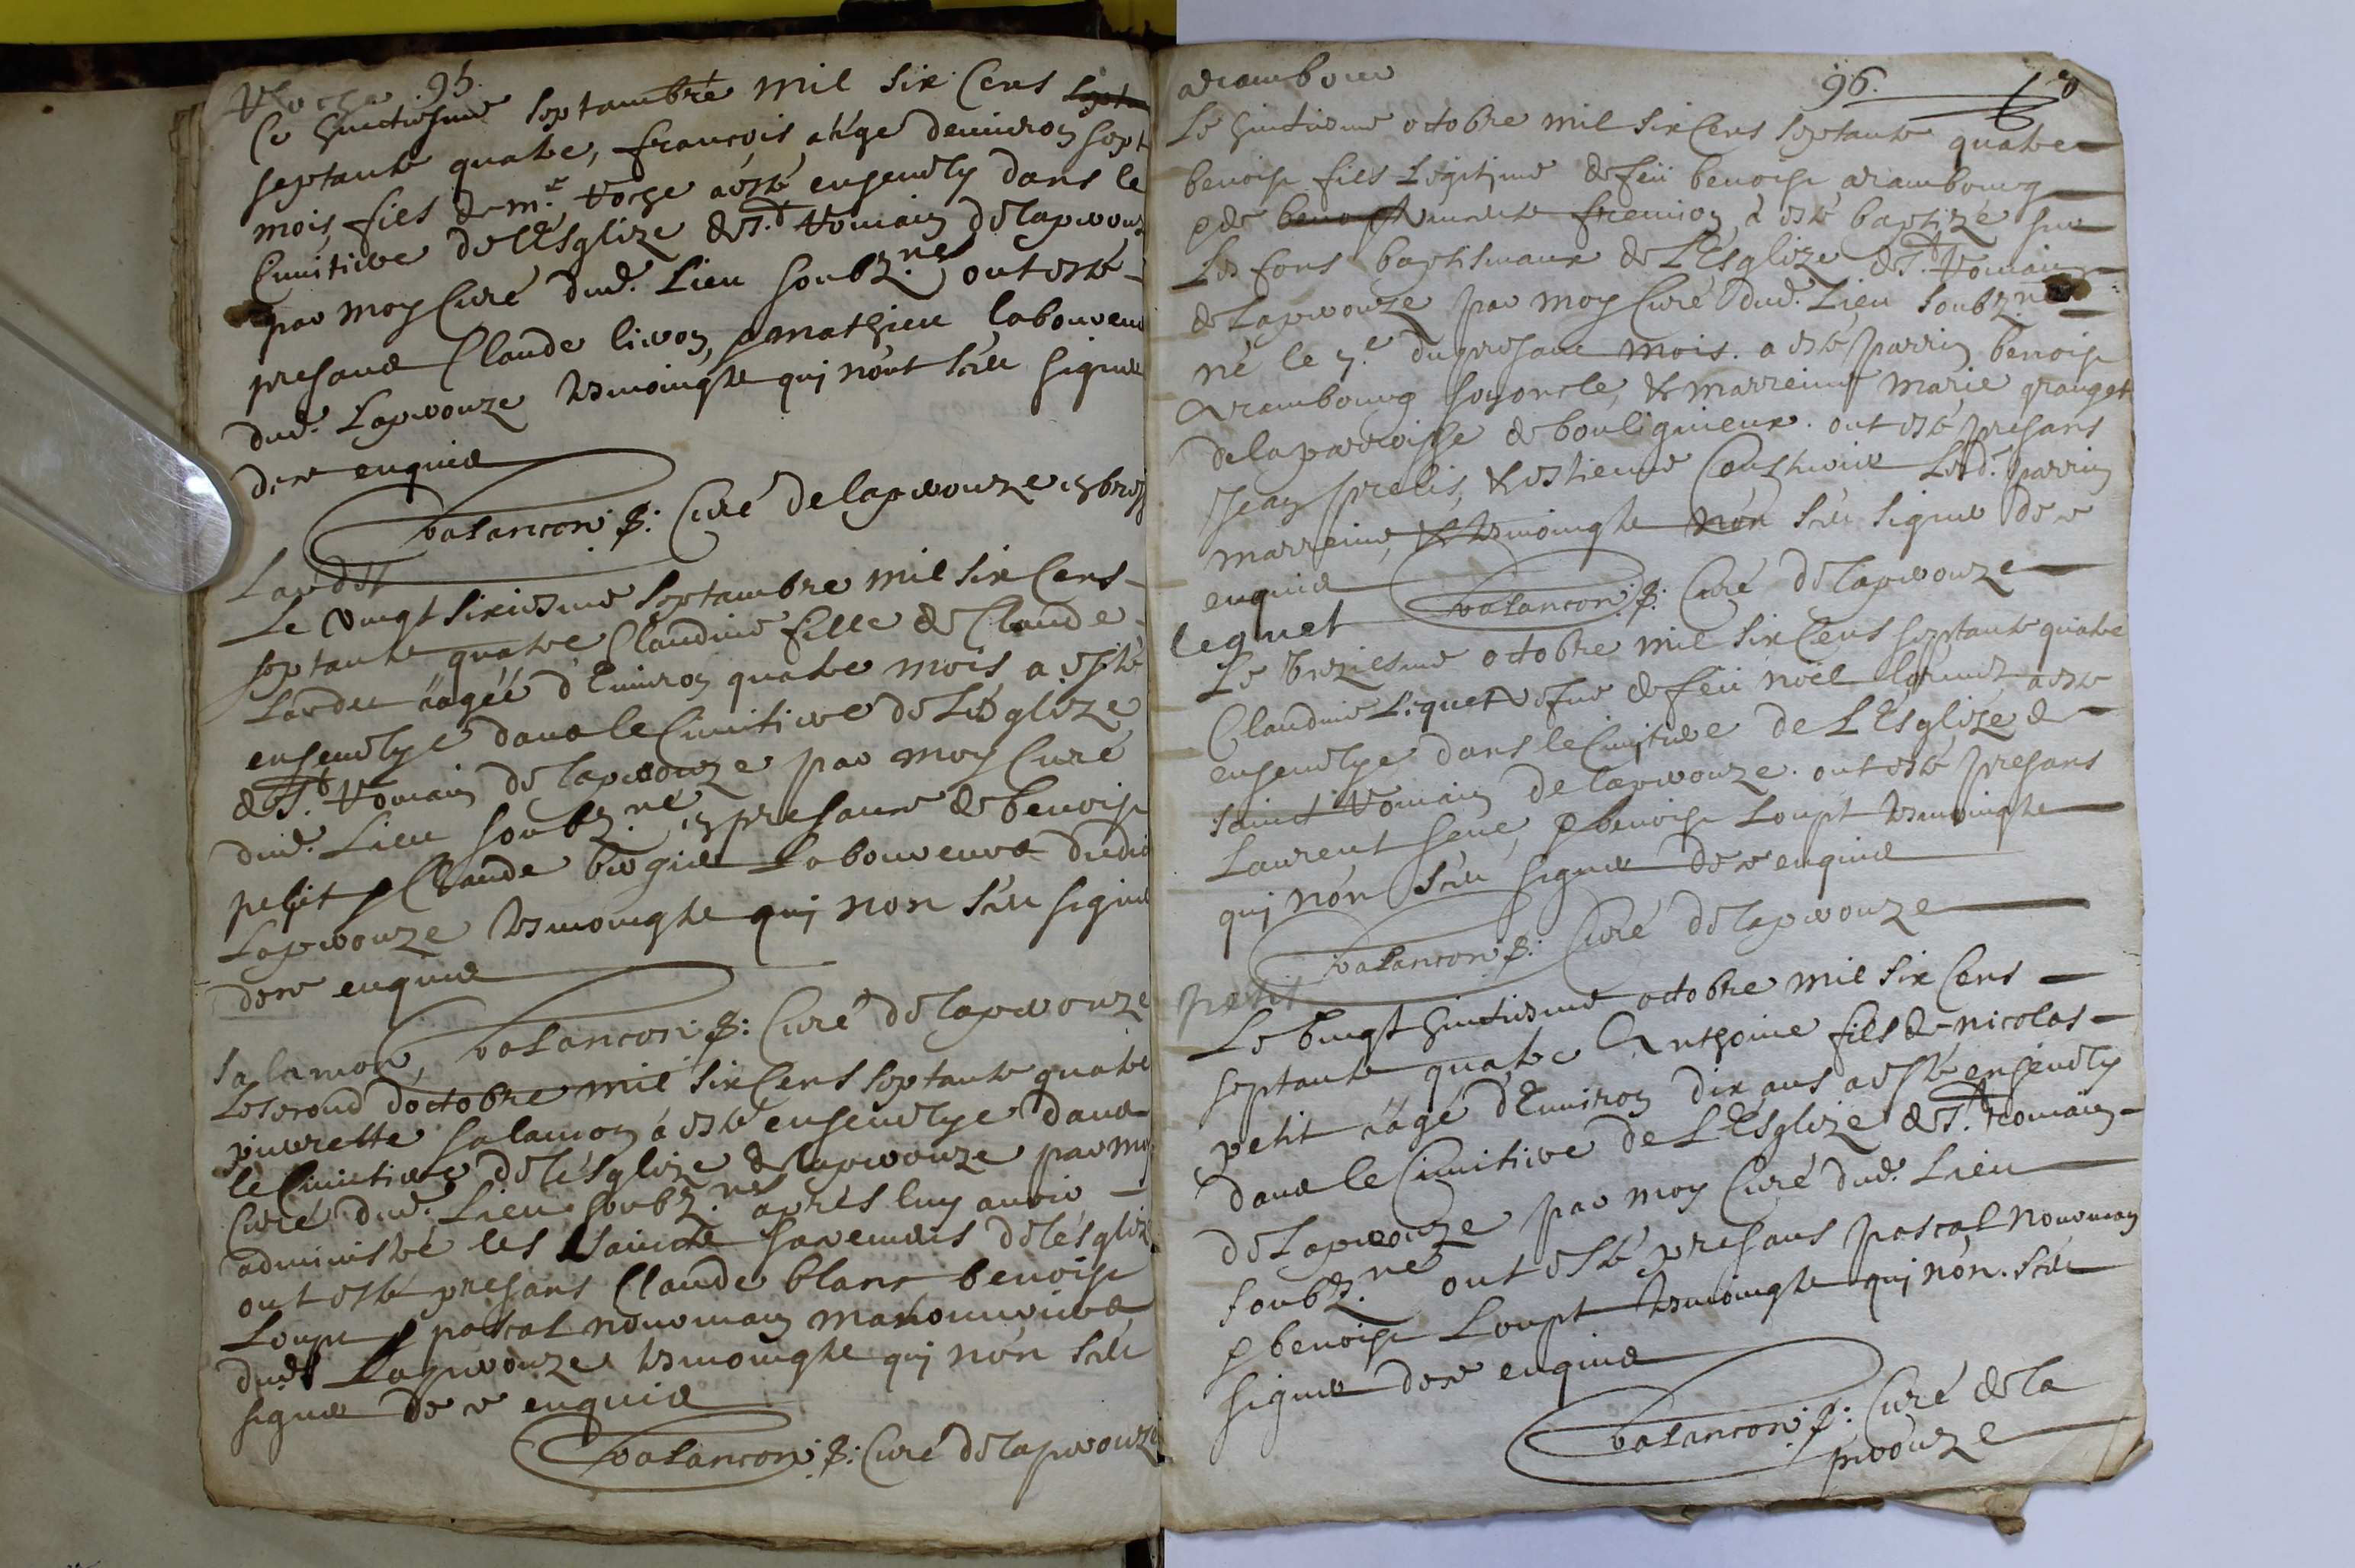 Roche 95.
Le huictiesme septambre mil six cens
septante quatre, françois aage denviron sept
mois, fils de m.e Roche a esté ensevely dans le
Cimitiere de l'Esglize de S.t Romain de Lapeirouze
par moy Curé dud. Lieu soubz.né ont esté
presans Claude livon, & mathieu laboureurs
dud. Lapeirouze tesmoingts qui n'ont sceu signer
de ce enquis
balancon p: Curé de lapeirouze en bresse
Lardet
Le vingt sixiesme septambre mil six cens
septante quatre Claudine fille de Claude
Lardet aagée d'Environ quatre mois a esté
ensevelye dans le Cimitiere de L'Esglize
de S.t Romain de lapeirouze par moy Curé
dud. Lieu soubz.né, en presance de benoist
petit & Claude laboureurs dudit
Lapeirouze tesmoingts qui non sceu signer
de ce enquis
balancon p: Curé de lapeirouze
Salamon,
Le second d'octobre mil six cens septante quatre
pierrette salamon a esté ensevelye dans
le Cimetiere de l'esglize de lapeirouze par moy
Curé dud. Lieu soubz.né apres luy avoir
administré les saincts sacremens de l'esglize
ont esté presans Claude blanc benoist
Loupt & pascal nouvman manouvriers
dud. Lapeirouze tesmoingts qui nón sceu
signer de ce enquis
balancon p: Curé de lapeirouze
arambour 96.
Le huictiesme octobre mil six cens septante quatre
benoist fils Legitime de feü benoist arambourg
& de fremion a esté baptizé sur
Les fons baptismaux de L'Esglize de S.t Romain
de Lapeirouze par moy Curé dud. Lieu soubz.né
né le 7.e du presant mois. a esté parrin benoist
Arambourg son oncle, & marreine marie granget
de la parroisse de bouligneux. ont esté presans
Jean prelis, & estienne Lesd. parrin
marreine, & tesmoingts nón sceu signer de ce
enquis balancon p: Curé de lapeirouze
lequet
Le treziesme octobre mil six cens septante quatre
Claudine Lequet vefve de feü noël a esté
ensevelye dans le Cimitiere de L'Esglize de
sainct Romain de lapeirouze. ont esté presans
Laurent seve, & benoist Loupt tesmoingts
qui nón sceu signer de ce enquis
balancon p: Curé de lapeirouze
petit
Le vingt huictiesme octobre mil six cens
septante quatre Anthoine fils de nicolas
petit aagé d'Environ dix ans a esté ensevely
dans le Cimitiere de L'Esglize de S.t Romain
de Lapeirouze par moy Curé dud. Lieu
soubz.né ont esté presans pascal nouvman
& benoist Loupt tesmoingts qui nón sceu
signer de ce enquis
balancon p: Curé de la
peirouze